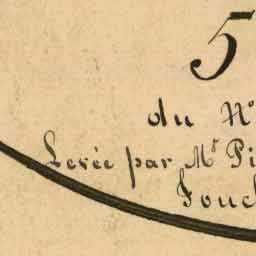 5
du N°
Levée par Mr Pi
Fouc